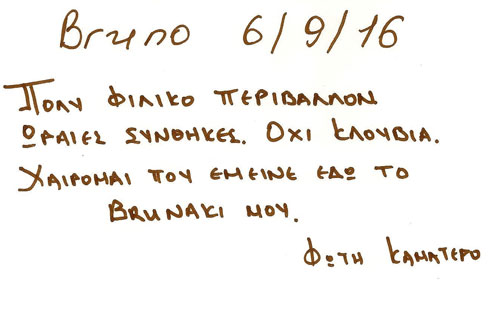 Bruno 6/9/16
ΠΟΛΥ ΦΙΛΙΚΟ ΠΕΡΙΒΑΛΛΟΝ
ΩΡΑΙΕΣ ΣΥΝΘΗΚΕΣ. ΟΧΙ ΚΛΟΥΒΙΑ.
ΧΑΙΡΟΜΑΙ ΠΟΥ ΕΜΕΙΝΕ ΕΔΩ ΤΟ
BRUNΑΚΙ ΜΟΥ.
ΦΩΤΗ ΚΑΜΑΤΕΡΟ